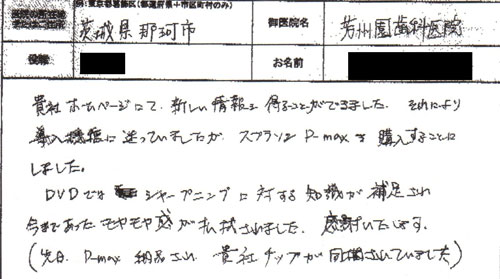 例:東京都葛飾区(都道府県+市区町村のみ)
茨城県那珂市
御医院名
芳州園歯科医院
役職
お名前
貴社ホームページにて、新しい情報を得ることができました。それにより
導入機種に迷っていましたが スプラソン P-max を購入することに
しました。
DVDでは シャープニングに対する知識が補足され
今まであったモヤモヤ感が払拭されました。感謝いたします。
(先日、P-max 納品され 貴社チップが同梱されていました)